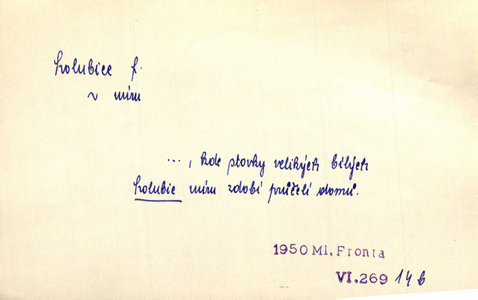 holubice f.
v míru
..., kde stovky velikých bílých
holubic míru zdobí průčelí domů.
1950 Ml. Fronta
VI.269 14 6